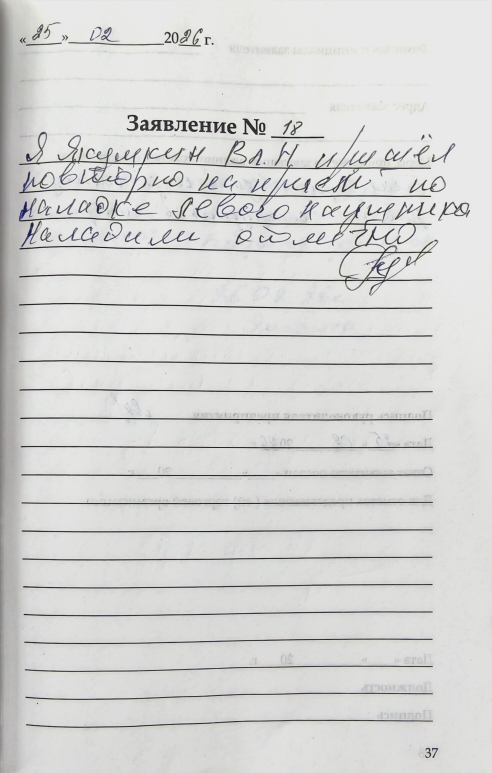 «25» 02 2026 г.
Заявление № 18
Я Якумкин Вл.Н пришёл
повторно на приём по
наладке левого наушника
Наладили отлично
37